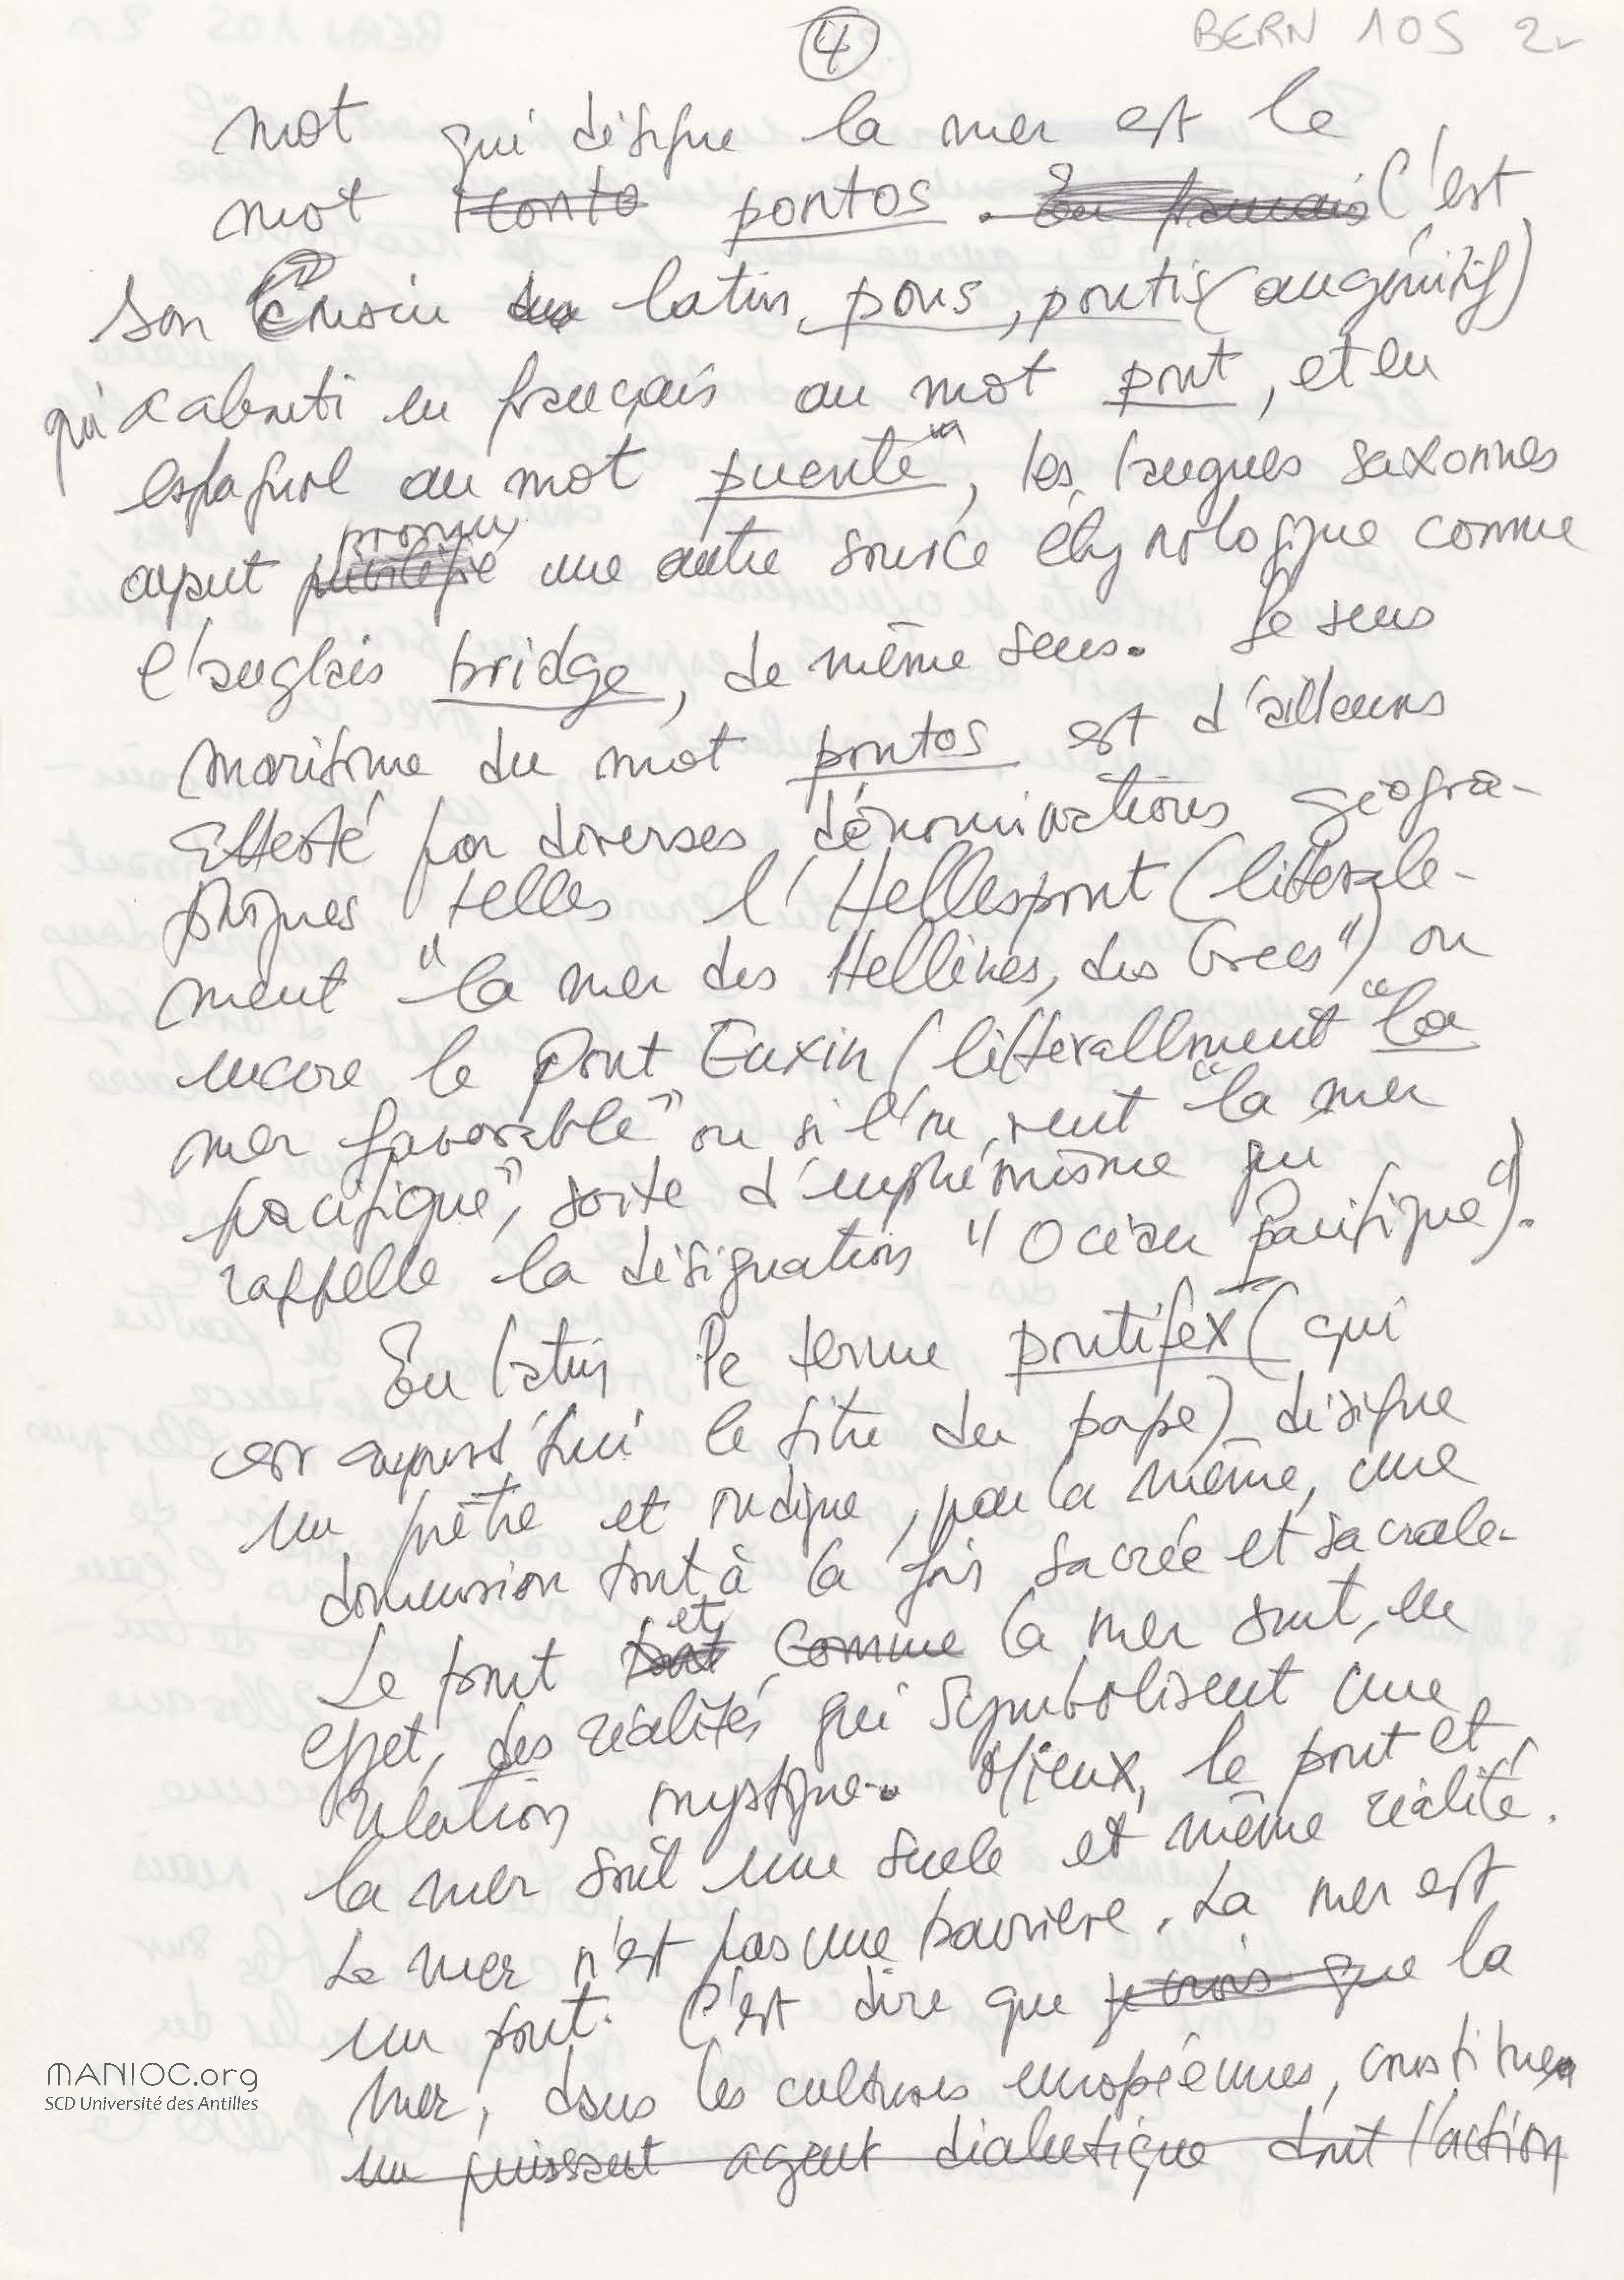 ④
BERN 105 2r
mot qui désigne la mer est le
mot pontos. C'est
son cousin latin, pons, pontis (au génitif)
qui a abouti en français au mot pont, et en
espagnol au mot puente, les langues saxonnes
ayant promu une autre source étymologique comme
l'anglais bridge, de même sens. Le sens
maritime du mot pontos est d'ailleurs
attesté par diverses dénominations géogra-
phiques telles l'Hellespont (littérale-
ment "la mer des Hellènes, des Grecs") ou
encore le Pont Euxin (littérallment "la
mer favorable" ou si l'on veut "la mer
pacifique", sorte d'euphémisme qu
rappelle la désignation "Océan Pacifique").
En latin le terme pontifex (qui
est aujourd'hui le titre du pape) désigne
un prêtre et indique, par là même, une
dimension tout à la fois sacrée et sacrale.
Le pont et comme la mer sont, en
effet, des réalités qui symbolisent une
relation mystique. Mieux, le pont et
la mer sont une seule et même réalité.
La mer n'est pas une barrière. La mer est
un pont. C'est dire que je crois que la
mer, dans les cultures européennes, constitue
un puissant agent dialectique dont l'action
MANIOC.org
SCD Université des Antilles